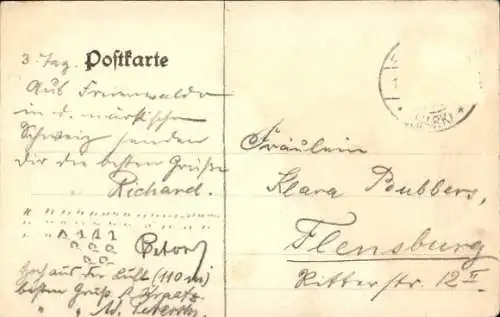 3. Tag. Postkarte
Aus Freienwalde
in d. märkischen
Schweiz senden
Dir die besten Grüße
Richard.
" " " " " " " " "
" "
Hoch aus der Luft (110 m)
besten Gruß
" "
(MARK)
Fräulein
Klara Doubbers,
Flensburg
Ritterstr. 12 II